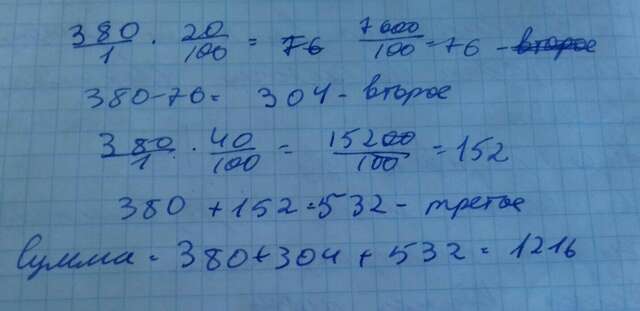 380/1 · 20/100 = 76 7600/100 = 76 - второе
380-76= 304 - второе
380/1 · 40/100 = 15200/100 = 152
380 + 152 = 532 - третое
Сумма = 380+304 + 532 = 1216